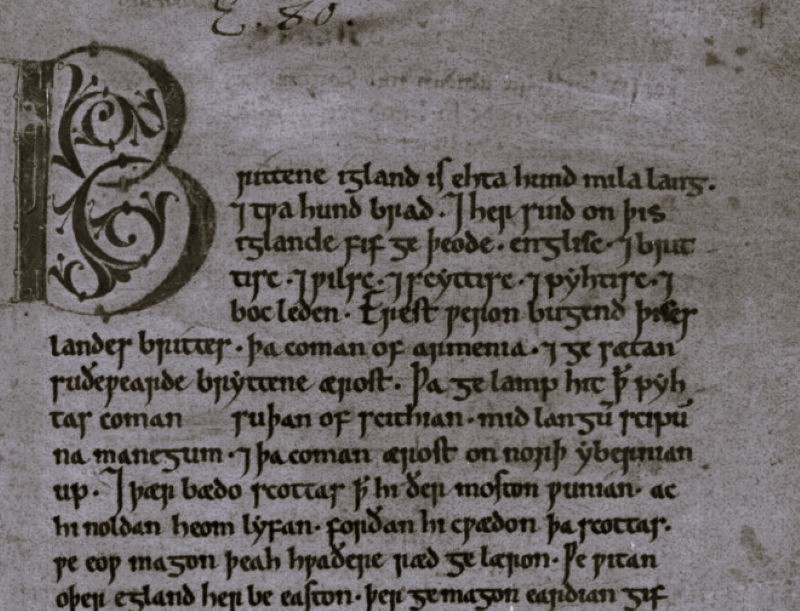 E. 80.
Brittene igland is ehta hund mila lang.
⁊ tƿa hund brad. ⁊ her sind on þis
iglande fif ge þeode. englisc. ⁊ brit
tisc. ⁊ ƿilsc. ⁊ scyttisc. ⁊ pyhtisc. ⁊
boc leden. Erest ƿeron bugend þises
landes brittes. þa coman of armenia. ⁊ ge sætan
suðeƿearde bryttene ærost. Þa ge lamp hit þꝥ pyh
tas coman suþan of scithian. mid langū scipū
na manegum. ⁊ þa coman ærost on norþ ybernian
up. ⁊ þær bædo scottas ꝥ hi ðer moston ƿunian. ac
hi noldan heom lyfan. forðan hi cƿædon þa scottas.
ƿe eoƿ magon þeah hƿaðere ræd ge læron. Ƿe ƿitan
oþer egland her be easton. þer ge magon eardian gif